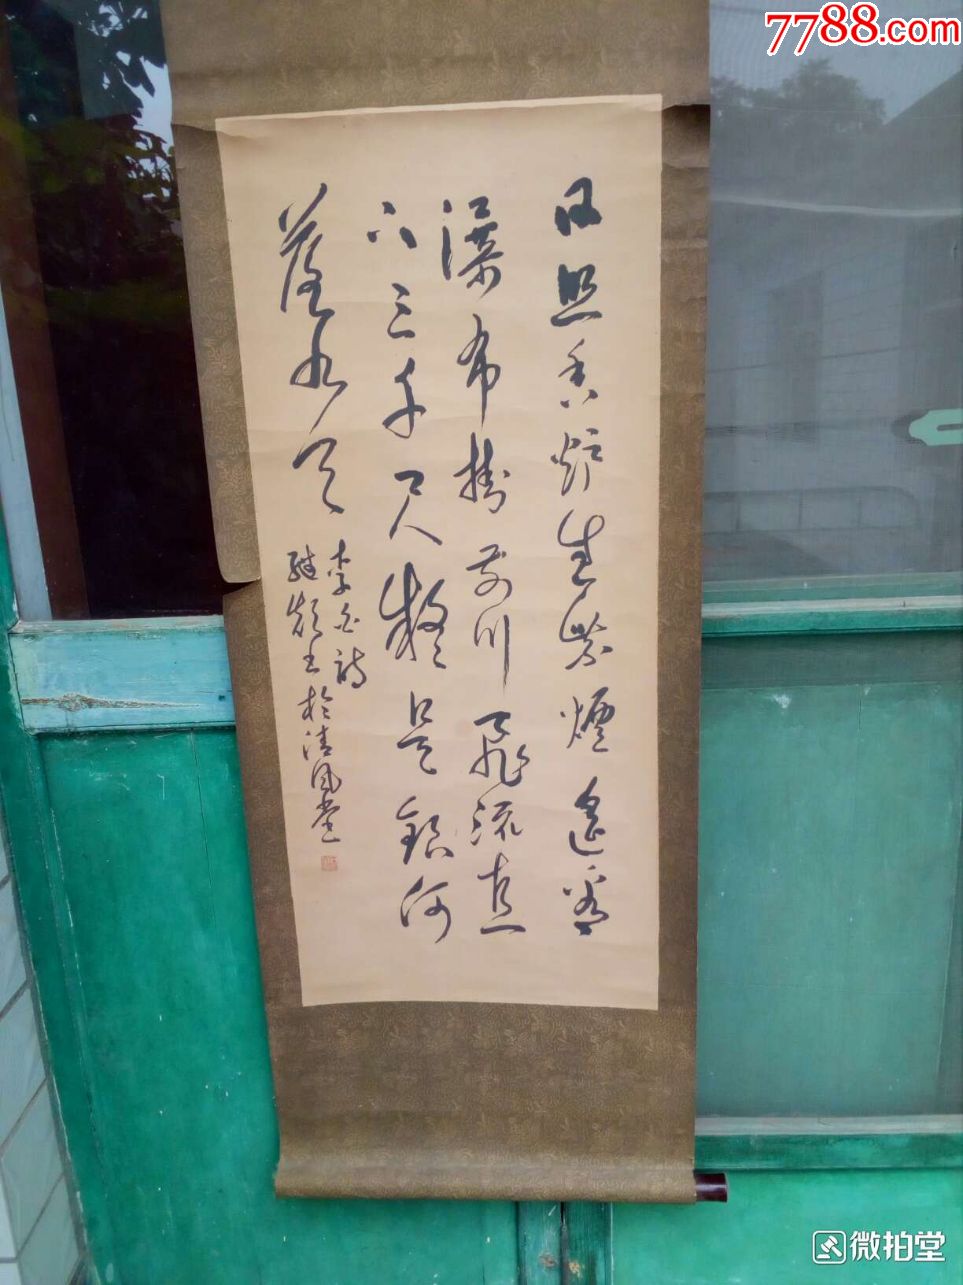 7788.com
日照香炉生紫煙遥看
瀑布掛前川飛流直
下三千尺疑是銀河
落九天
李白詩
书於清風堂
微拍堂